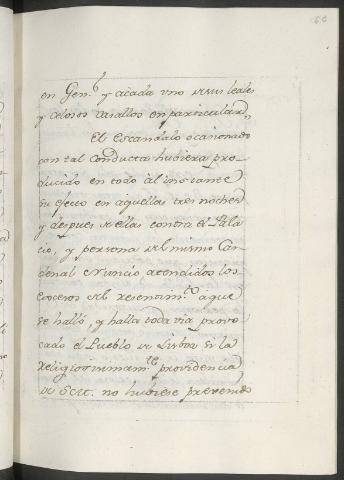 en Gen.l y a cada uno de sus leales
y celosos vasallos en particular.
El escandalo ocasionado
con tal conducta hubiera pro-
ducido en todo al instante
su efecto en aquellas tres noches
y despues de ellas contra el Pala-
cio, y persona del mismo Car-
denal Nuncio atendidos los
excesos del resentim.to a que
se halló, y halla toda via provo-
cado el Pueblo de Lisboa si la
Religiosissima providencia
de S.M. no hubiese prevenido